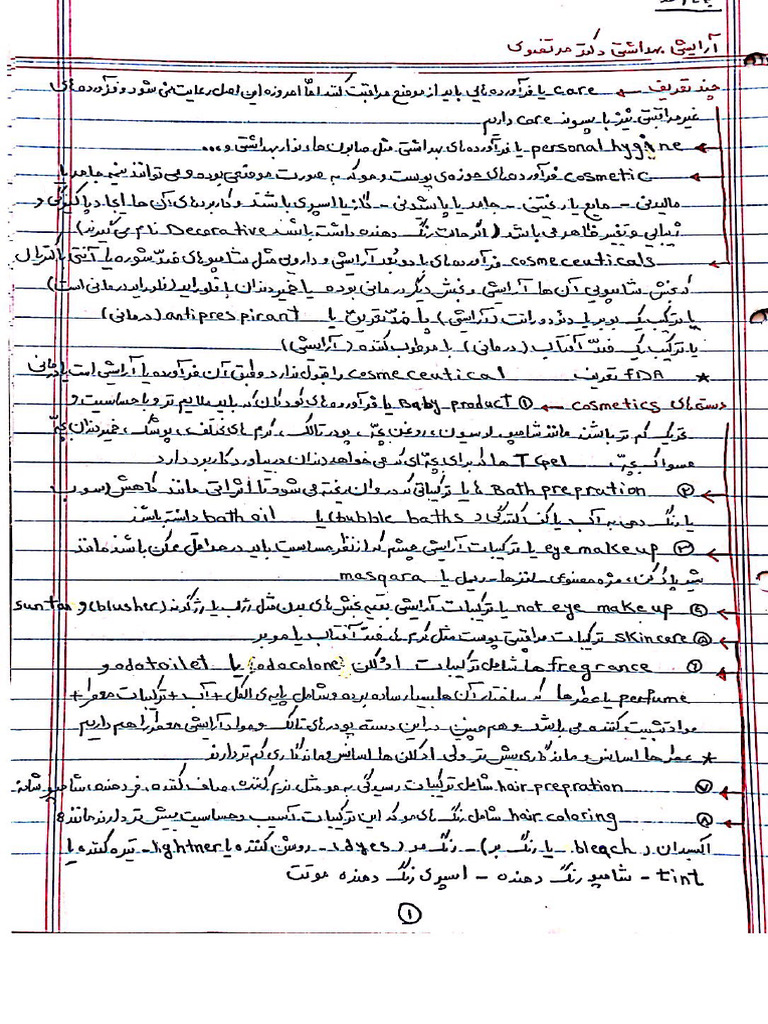 آرایشی بهداشتی دکتر مرتضوی
چند تعریف ← care یا فرآورده‌هایی باید از موضع مراقبت کنند اما امروزه این اصل رعایت نمی شود و فرآورده های
غیر مراقبتی نیز با پسوند care داریم
personal hygine یا فرآورده های بهداشتی مثل صابون ها، نوار بهداشتی و...
cosmetic فرآورده های حوزه ی پوست و مو که به صورت موضعی بوده و می توانند نیمه جامد یا
مالیدنی - مایع یا ریختنی - جامد یا پاشیدنی - گاز یا اسپری باشند و کاربردهای آن ها ایجاد پاکیزگی و
زیبایی و تغییر ظاهر می باشد (اگر حالت رنگ دهنده داشته باشند Decorative نام می گیرند)
cosmeceuticals فرآورده های با دو بُعد آرایشی و دارویی مثل شامپوهای ضدّ شوره یا آنتی باکتریال
که بخش شامپویی آن ها آرایشی و بخش دیگر درمانی بوده یا خمیردندان با فلوراید (فلوراید درمانی است)
یا ترکیب یک بوبر یا دئودورانت (آرایشی) با ضدّ تعریق یا antiprespirant (درمانی)
یا ترکیب یک ضدّ آفتاب (درمانی) با مرطوب کننده (آرایشی)
* FDA تعریف cosmeceutical را قبول ندارد و طبق آن فرآورده یا آرایشی است یا درمانی
دسته های cosmetics ← ① Baby product یا فرآورده های کودکان که باید ملایم تر و با حساسیت و
تحریک کم تر باشند مانند شامپو، لوسیون، روغن بچّه، پودر تالک، کرم های مختلف، پوشک، خمیردندان بچّه
مسواک بچّه، T Gel ها که برای بچّه ای که می خواهد دندان در بیاورد کاربرد دارد
② Bath prepration ها یا ترکیباتی که در وان ریخته می شود تا اثراتی مانند کاهش رسوب
یا رنگ دهی به آب یا کف کنندگی (bubble baths) و یا bath oil داشته باشند
③ eye make up یا ترکیبات آرایشی چشم که از نظر حساسیت باید در حداقل ممکن باشند مانند
شید پاک کن، مژه مصنوعی، لنزها، ریمل یا masqara
④ not eye make up یا ترکیبات آرایشی بقیه بخش های بدن مثل رژلب یا رژگونه (blusher) و suntan
⑤ skin care ترکیبات مراقبتی پوست مثل کرم های ضدّ آفتاب یا موبر
⑥ fregrance ها شامل ترکیبات ادکلن (odocolone) یا odotoilet و
perfume یا عطرها که ساختار آن ها بسیار ساده بوده و شامل پایه ی الکل + آب + ترکیبات معطر +
مواد تثبیت کننده می باشد و هم چنین در این دسته پودرهای تالک و مواد آرایشی معطر را هم داریم
* عطرها اسانس و ماندگاری بیش تر ولی ادکلن ها اسانس و ماندگاری کم تر دارند
⑦ hair prepration شامل ترکیبات رسیدگی به مو مثل نرم کننده، صاف کننده، فر دهنده، شامپو، شانه
⑧ hair coloring شامل رنگ های مو که این ترکیبات آسیب و حساسیت بیش تر دارند مانند:
اکسیدان (bleach یا رنگ بر) - رنگ مو (dyes) - روشن کننده یا lightner - تیره کننده یا
tint - شامپو رنگ دهنده - اسپری رنگ دهنده موقت
①